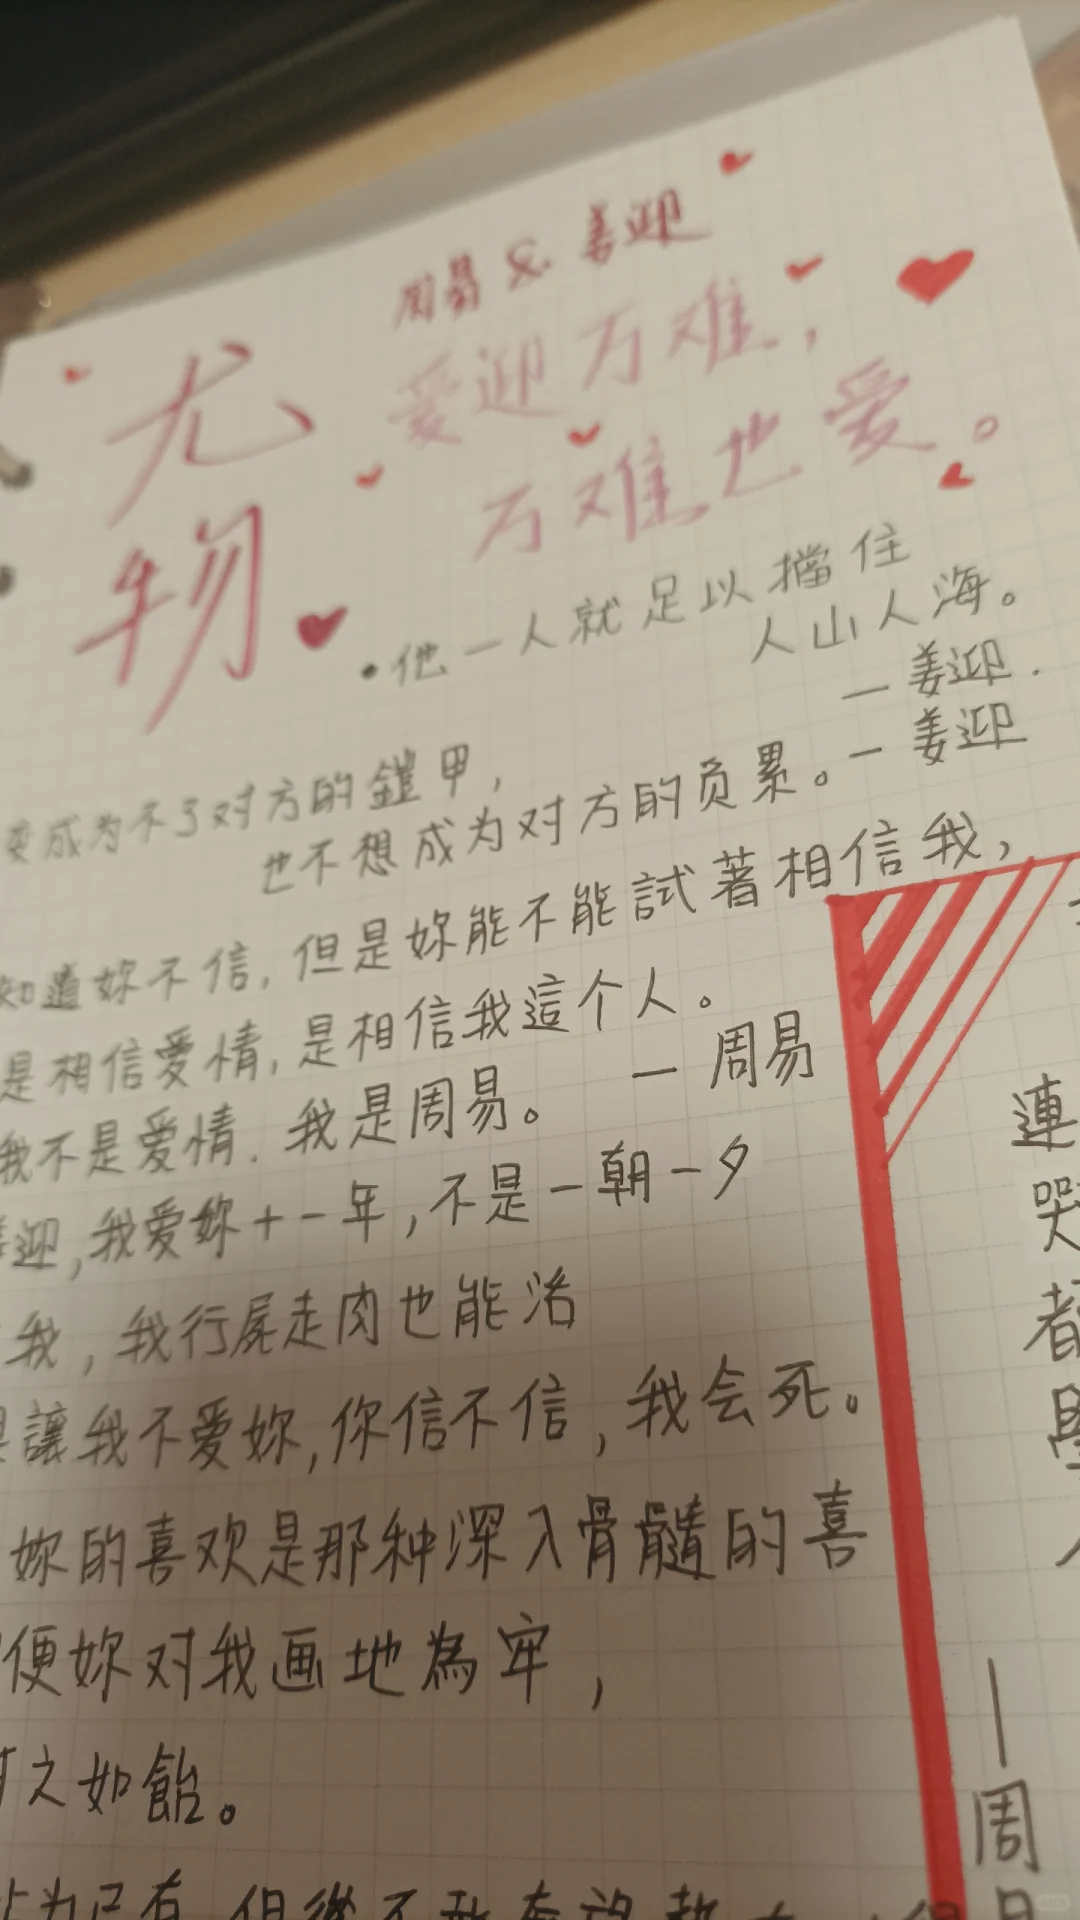 周易 & 姜迎
尤物
爱迎万难,
万难也爱。
·他一人就足以擋住
人山人海。
— 姜迎.
变成为不了对方的鎧甲,
也不想成为对方的负累。— 姜迎
知道妳不信,但是妳能不能試著相信我,
是相信愛情,是相信我這个人。
— 周易
我不是爱情.我是周易。
迎,我爱妳十一年,不是一朝一夕
我,我行屍走肉也能活
讓我不爱妳,你信不信,我会死。
妳的喜欢是那种深入骨髓的喜
便妳对我画地為牢,
之如飴。
連
哭
都
學
—周